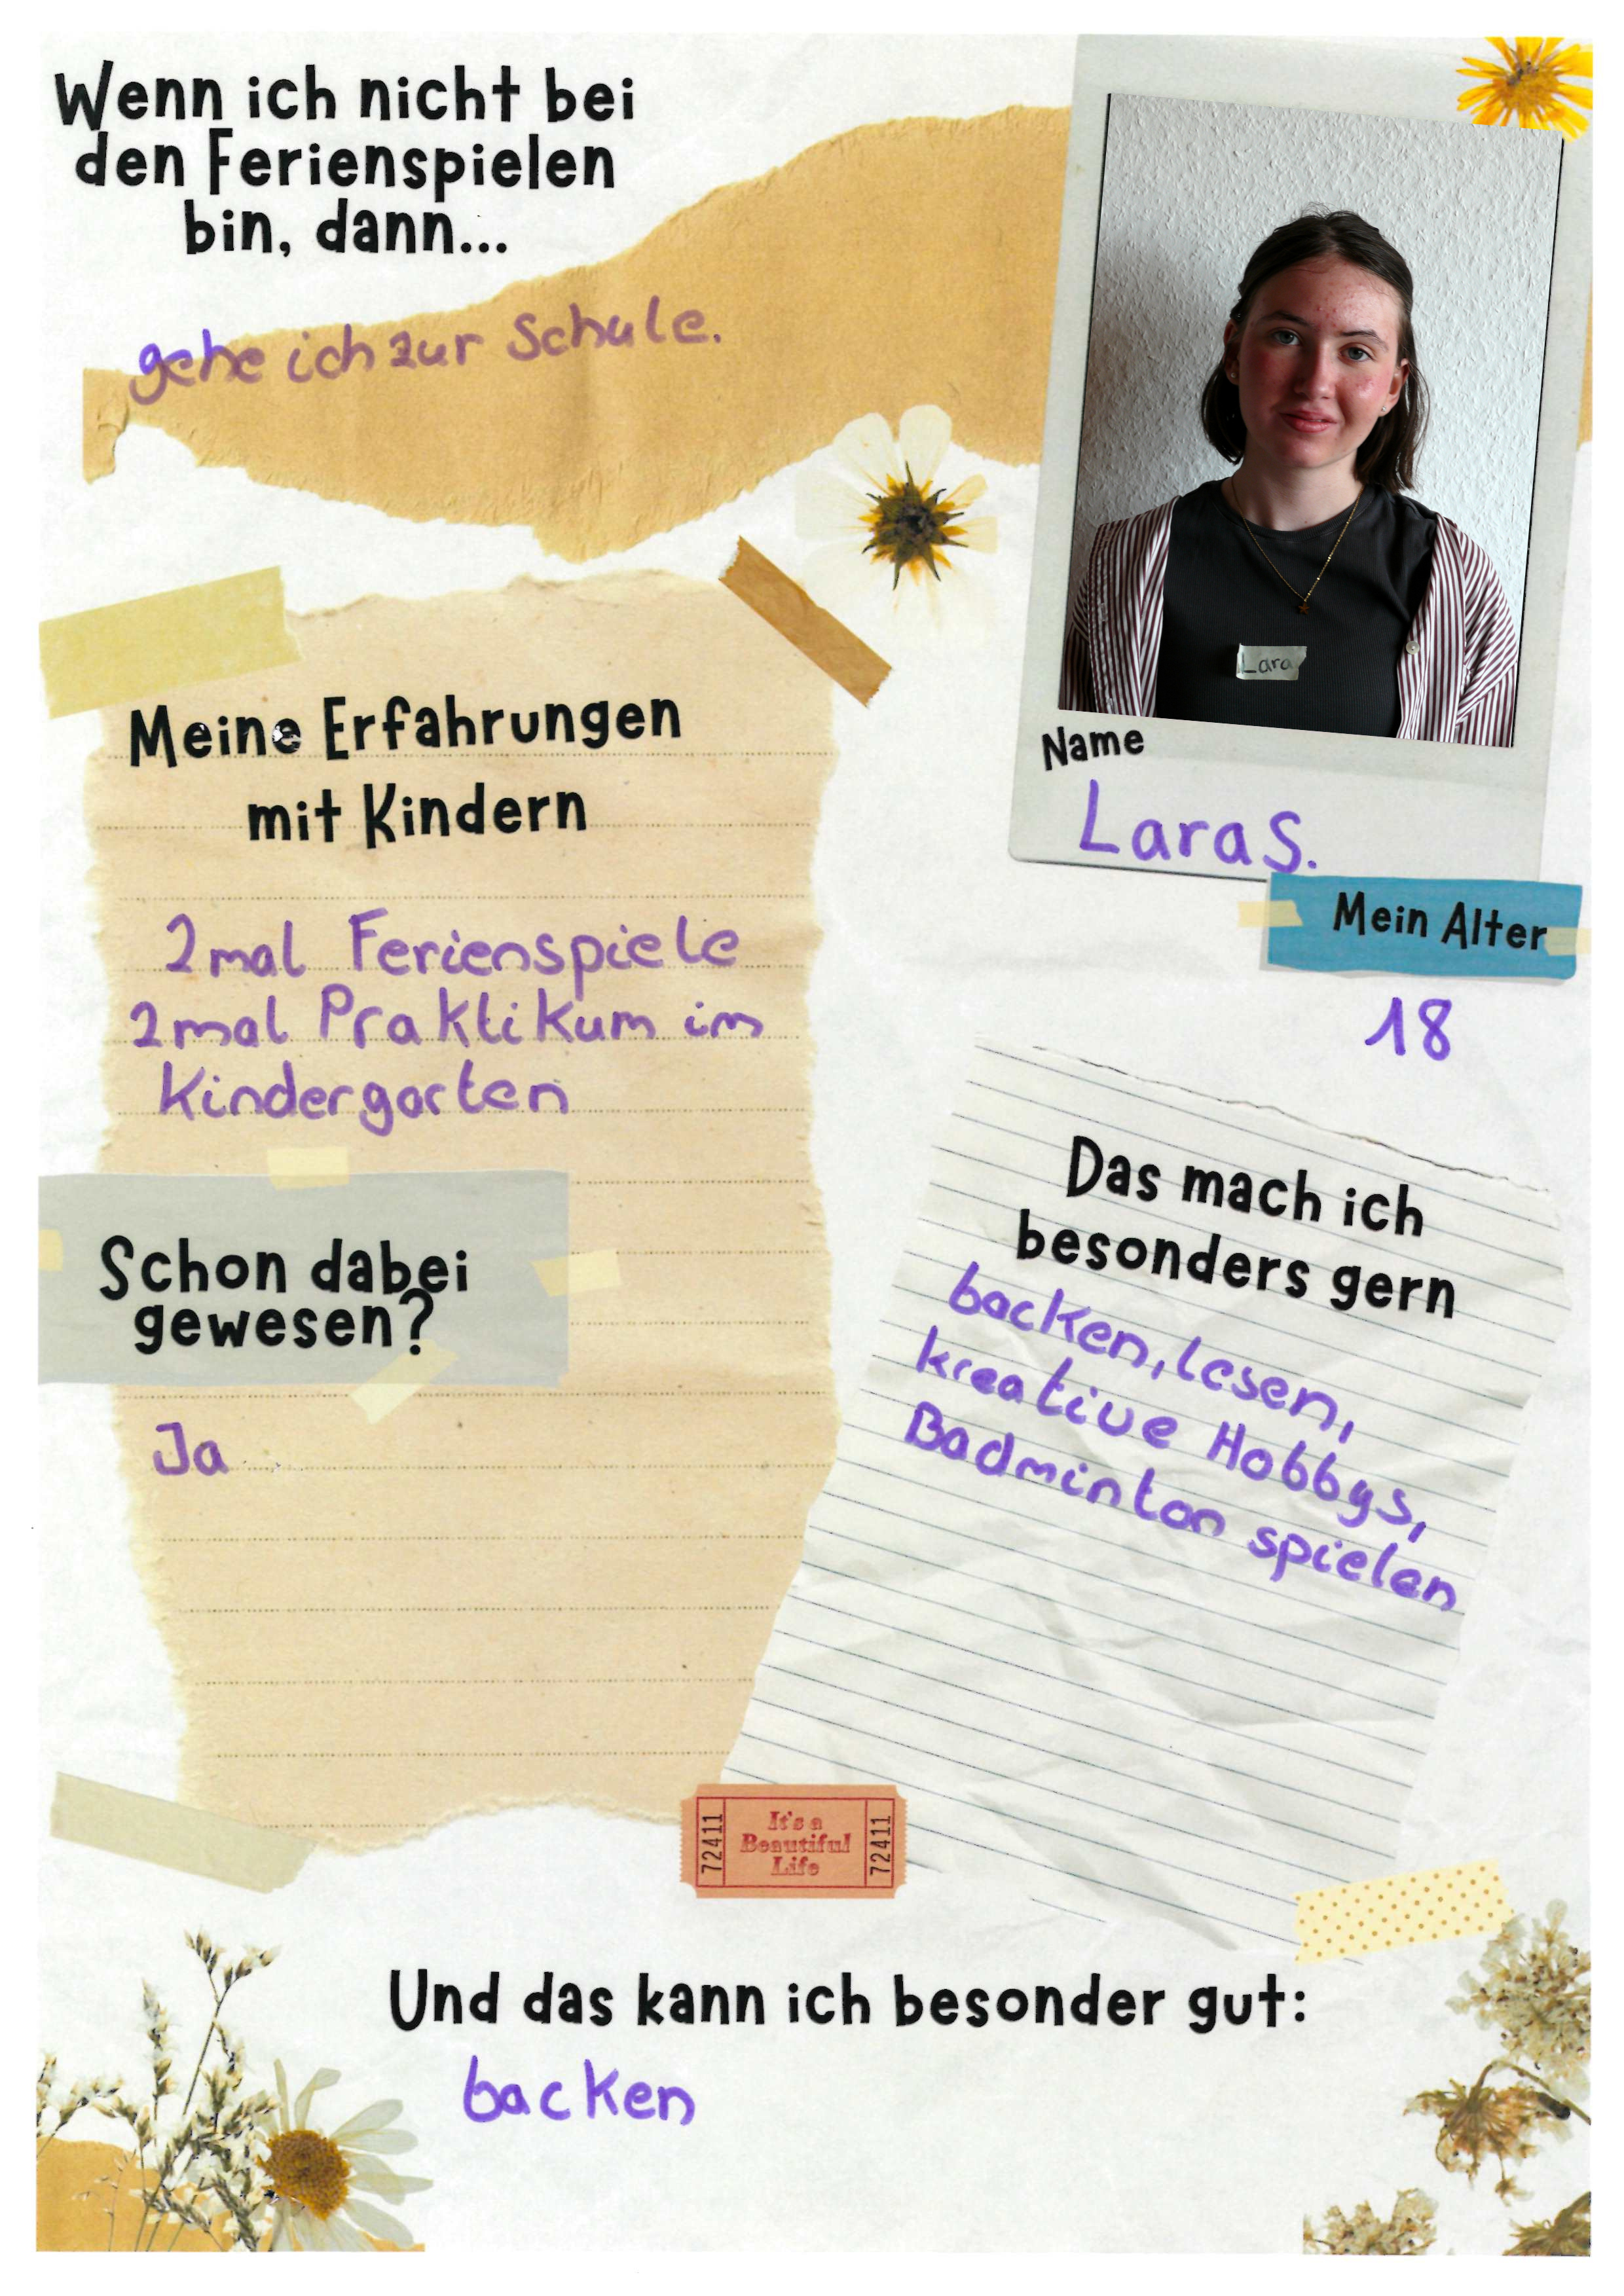 Wenn ich nicht bei
den Ferienspielen
bin, dann...
gehe ich zur Schule.
Lara
Name
Lara S.
Mein Alter
18
Meine Erfahrungen
mit Kindern
2mal Ferienspiele
2mal Praktikum im
Kindergarten
Schon dabei
gewesen?
Ja
Das mach ich
besonders gern
backen, lesen,
kreative Hobbys,
Badminton spielen
72411
It's a
Beautiful
Life
72411
Und das kann ich besonder gut:
backen